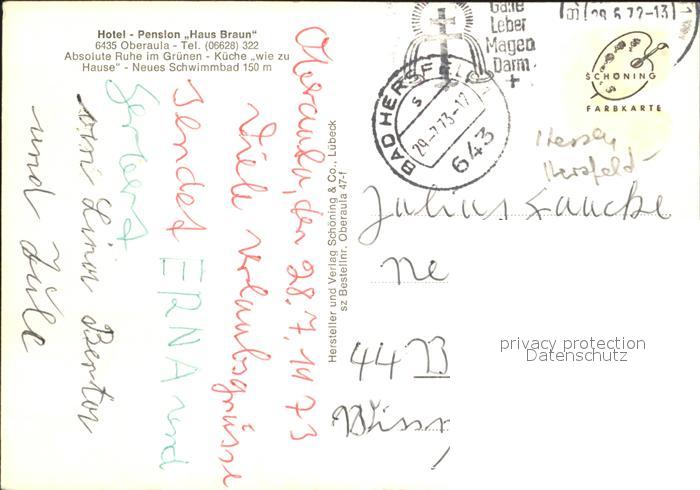 Hotel - Pension „Haus Braun"
6435 Oberaula - Tel. (06628) 322
Absolute Ruhe im Grünen - Küche „wie zu
Hause" - Neues Schwimmbad 150 m
Oberaula, den 28.7.1973
Viele Urlaubsgrüsse
sendet ERNA und
Herbert
und
Hersteller und Verlag Schöning & Co., Lübeck
sz Bestellnr. Oberaula 47-f
Galle
Leber
Magen
Darm
BAD HERSFELD 1
s
29.-7.73-17
643
29.6.72-13
SCHÖNING
FARBKARTE
Hessen
Hersfeld
Julius
Ne
44 B
privacy protection
Datenschutz